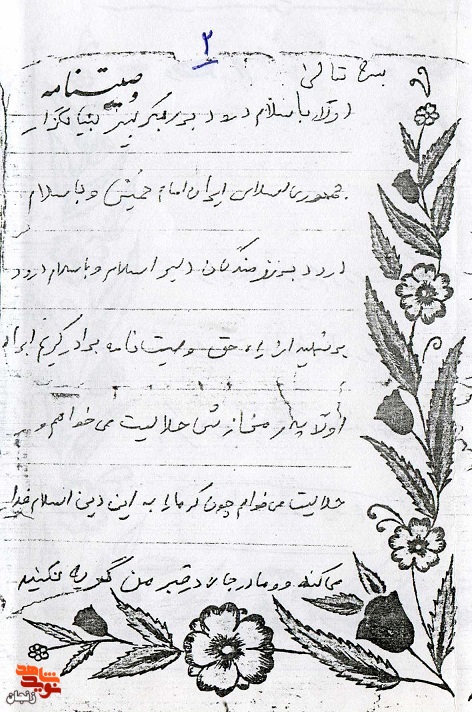 ۲
بسمه تعالی
وصیتنامه
اولا با سلام درود بر رهبر کبیر بنیانگذار
جمهوری اسلامی ایران امام خمینی و با سلام
درود بر رزمندگان دلیر اسلام و با سلام درود
بر شهیدان راه حق وصیت نامه برادر کریم
اولا پدر من از شما حلالیت می خواهم و
حلالیت می خوام چون که ما را به این دین اسلام فدا
می کنه و مادر جان در قبر من گریه نکنید
نوید شاهد
زنجان